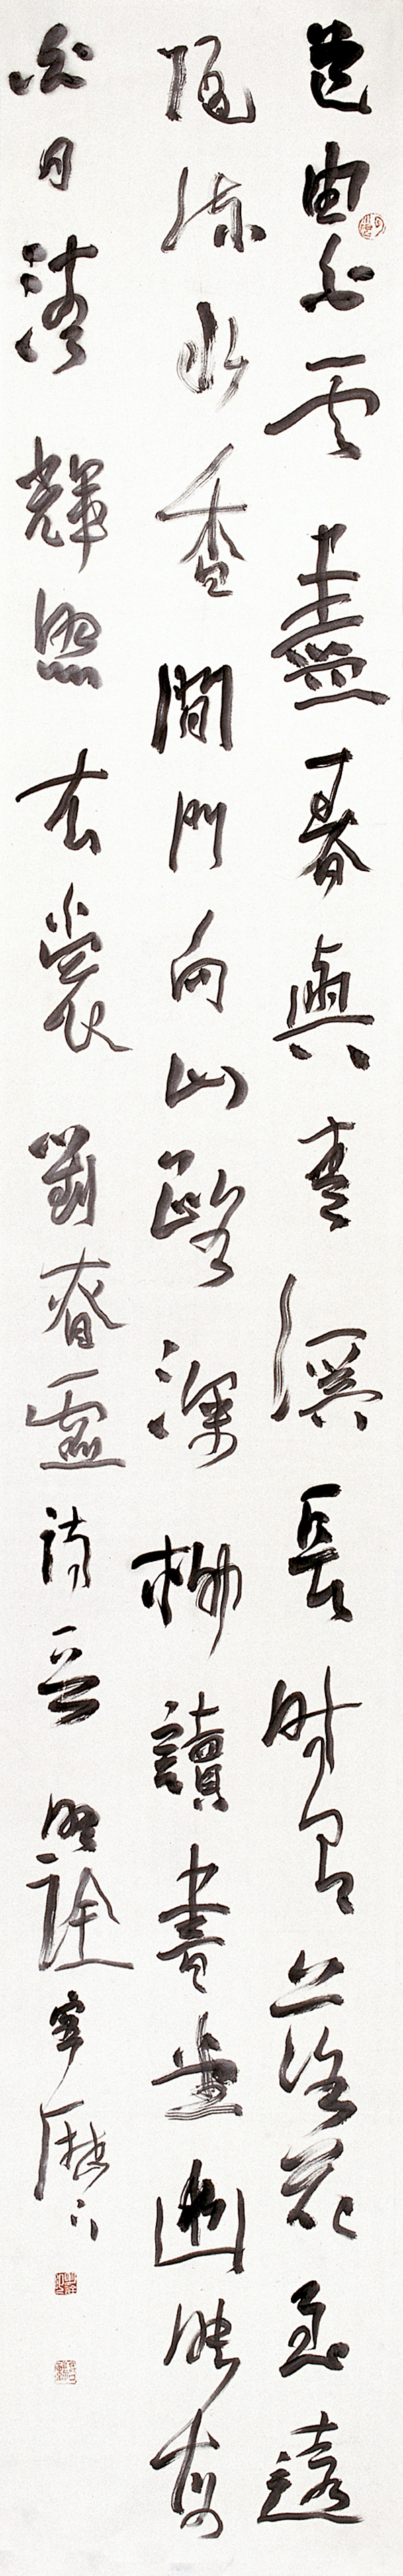 道由白雲盡春與青溪長時有落花至遠
隨流水香閒門向山路深柳讀書堂幽映
白日清輝照衣裳 劉眘虛詩